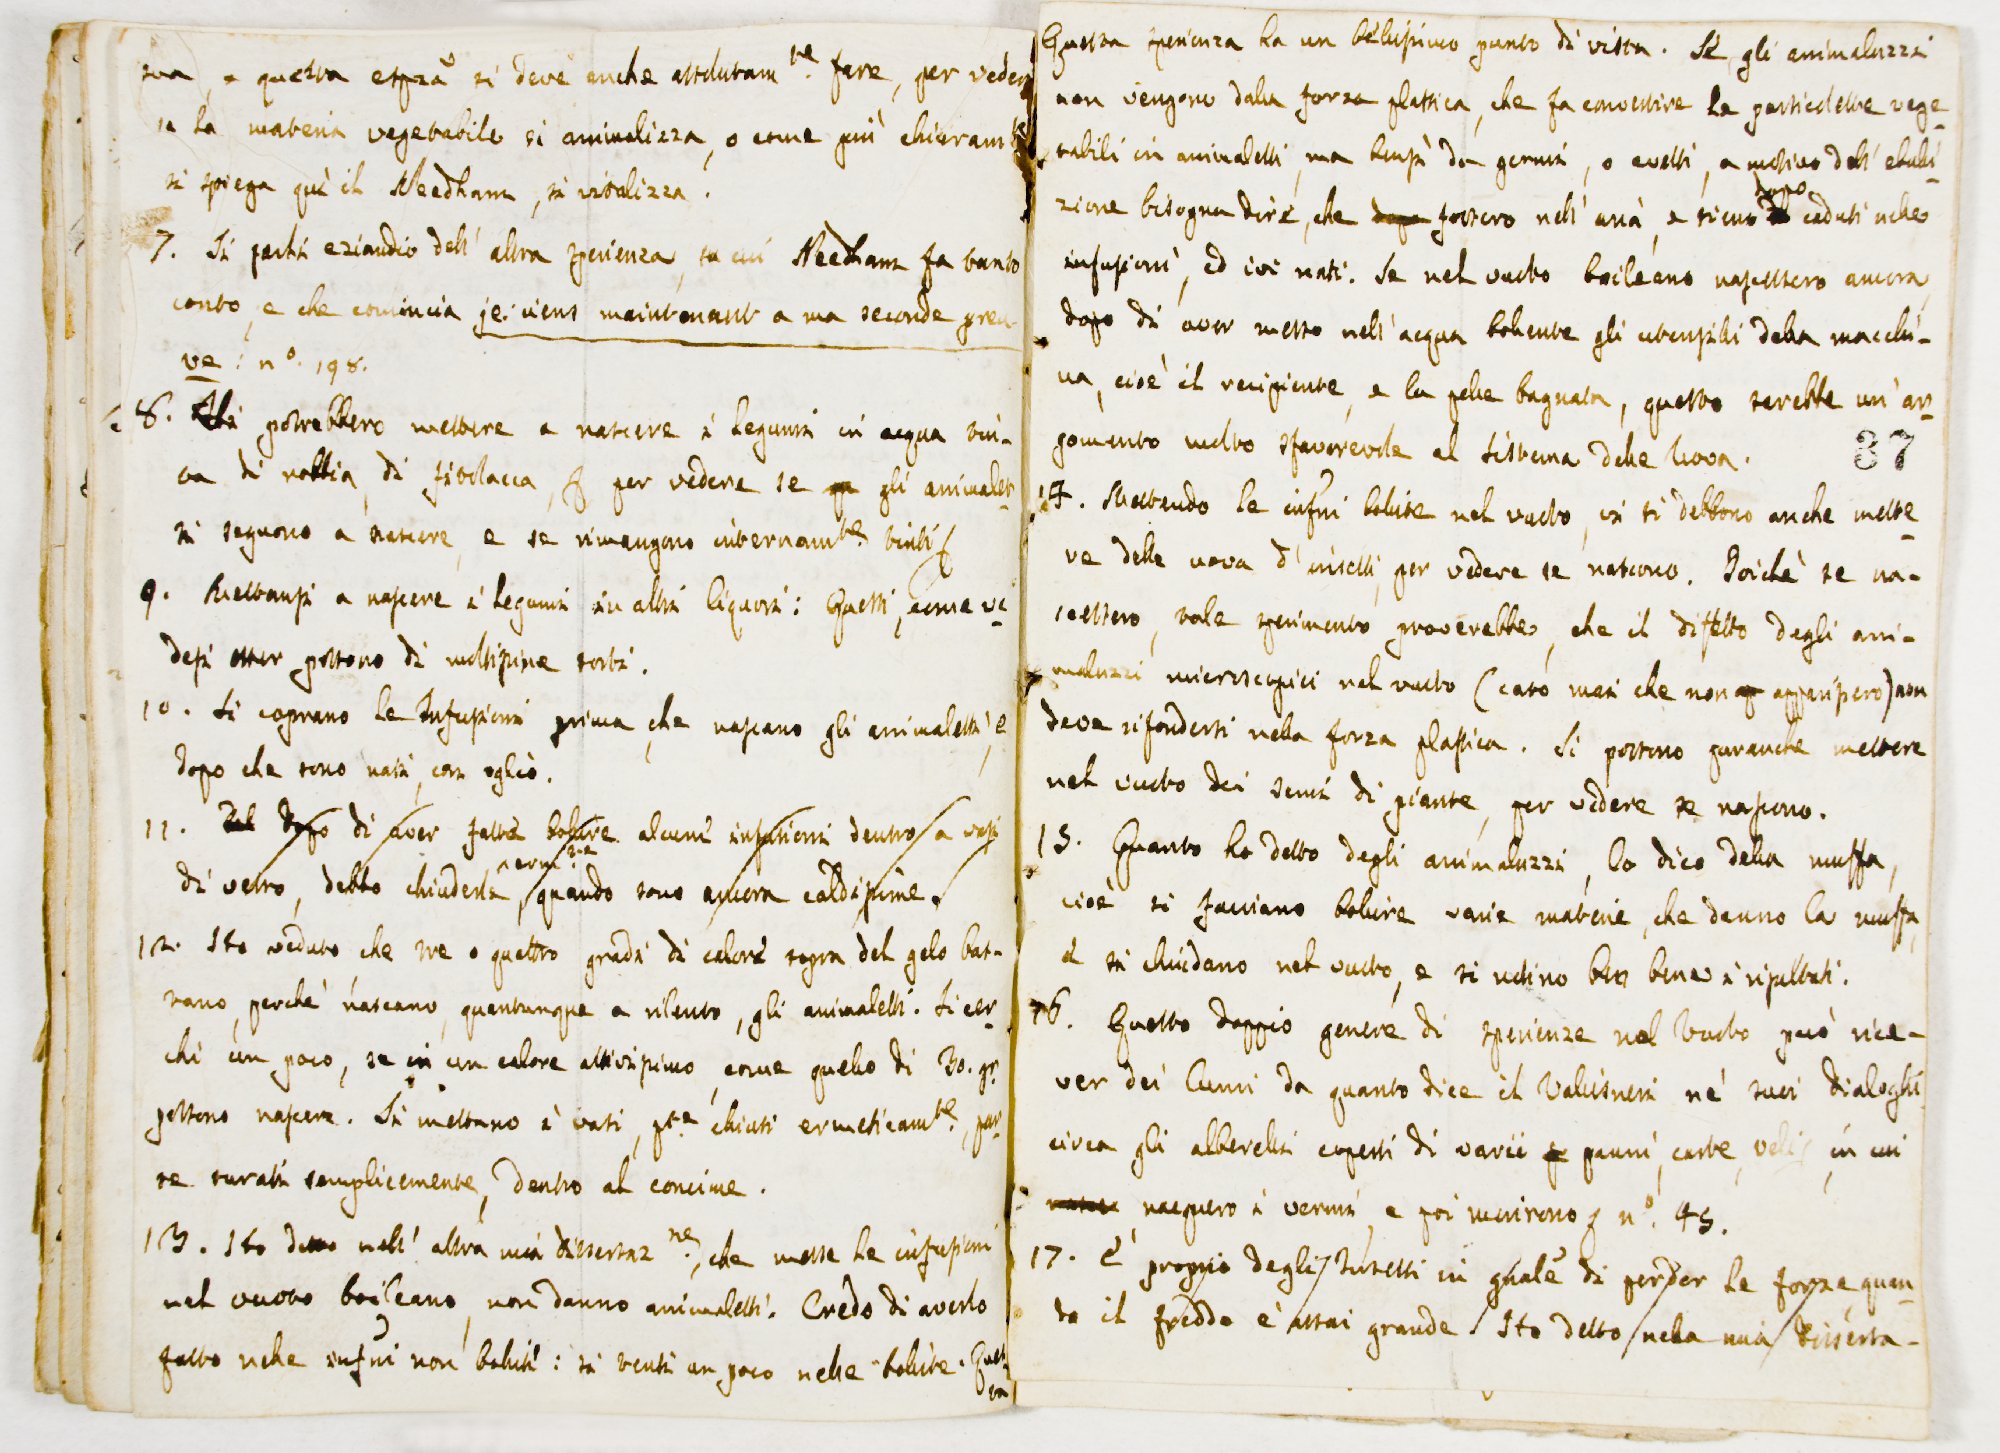 sua, e questa espza si deve anche assolutamte fare, per veder
se la materia vegetabile si animalizza, o come più chiaramte
si spiega quì il Needham, si vitalizza.
7. Si parli eziandio dell' altra sperienza, su cui Needham fa tanto
conto, e che comincia je viens maintenant a ma seconde preu-
ve: n°. 198.
8. Si potrebbero mettere a nascere i legumi in acqua tin-
ta di robbia, di fitolacca, per vedere se gli animalet-
ti seguono a nascere, e se rimangono internamte tinti
9. Mettansi a nascere i legumi in altri liquori: Questi, come ve-
desi esser possono di moltissime sorti.
10. Si coprano le Infusioni prima, che nascano gli animaletti, e
dopo che sono nati, con oglio.
11. Dopo di aver fatte bolire alcune infusioni dentro a vasi
di vetro, debbo chiuderli erm.te, quando sono ancora caldissime.
12. Ho veduto, che tre o quattro gradi di calore sopra del gelo bas-
tano, perchè nascano, quantunque a rilento, gli animaletti. Si cer-
chi un poco, se in un calore attivissimo, come quello di 30. gr.
possono nascere. Si mettano i vasi, pte chiusi ermeticamte, par-
te turati semplicemente, dentro al concime.
13. Ho detto nell' altra mia dissertazne, che messe le infusioni
nel vuoto boileano, non danno animaletti. Credo di averlo
fatto nelle infni non bolite: si tenti un poco nelle bolite. Quest-
ta
Questa sperienza ha un bellissimo punto di vista. Se gli animaluzzi
non vengono dalla forza plastica, che fa convertire le particelette vege-
tabili in animaletti, ma bensì da germi, o ovetti, a motivo dell' eboli-
zione bisogna dire, che fossero nell' aria, e sieno dopo caduti nelle
infusioni, ed ivi nati. Se nel vuoto boileano nascessero ancora,
dopo di aver messo nell' acqua bollente gli utensili della macchi-
na, cioè il recipiente, e la pelle bagnata, questo sarebbe un' ar-
gomento molto sfavorevole al sistema delle uova.
37
14. Mettendo le infni bolite nel vuoto, vi si debbono anche mette-
re delle uova d' insetti, per vedere se nascono. Poichè se na-
scessero, tale sperimento proverebbe, che il difetto degli ani-
maluzzi microscopici nel vuoto (caso mai che non apparissero) non
deve rifondersi nella forza plastica. Si possono puranche mettere
nel vuoto dei semi di piante, per vedere se nascono.
15. Quanto ho detto degli animaluzzi, lo dico della muffa,
cioè si facciano bolire varie materie, che danno la muffa,
e si chiudano nel vuoto, e si notino ben bene i risultati.
16. Questo doppio genere di sperienze nel Vuoto può rice-
ver dei lumi da quanto dice il Valisneri ne' suoi Dialoghi
circa gli alberelli coperti di varii panni, carte, veli, in cui
nacquero i vermi, e poi morirono n°. 45.
17. È proprio degli Insetti in gnale di perder le forze, quan-
do il freddo è assai grande. Ho detto nella mia disserta-